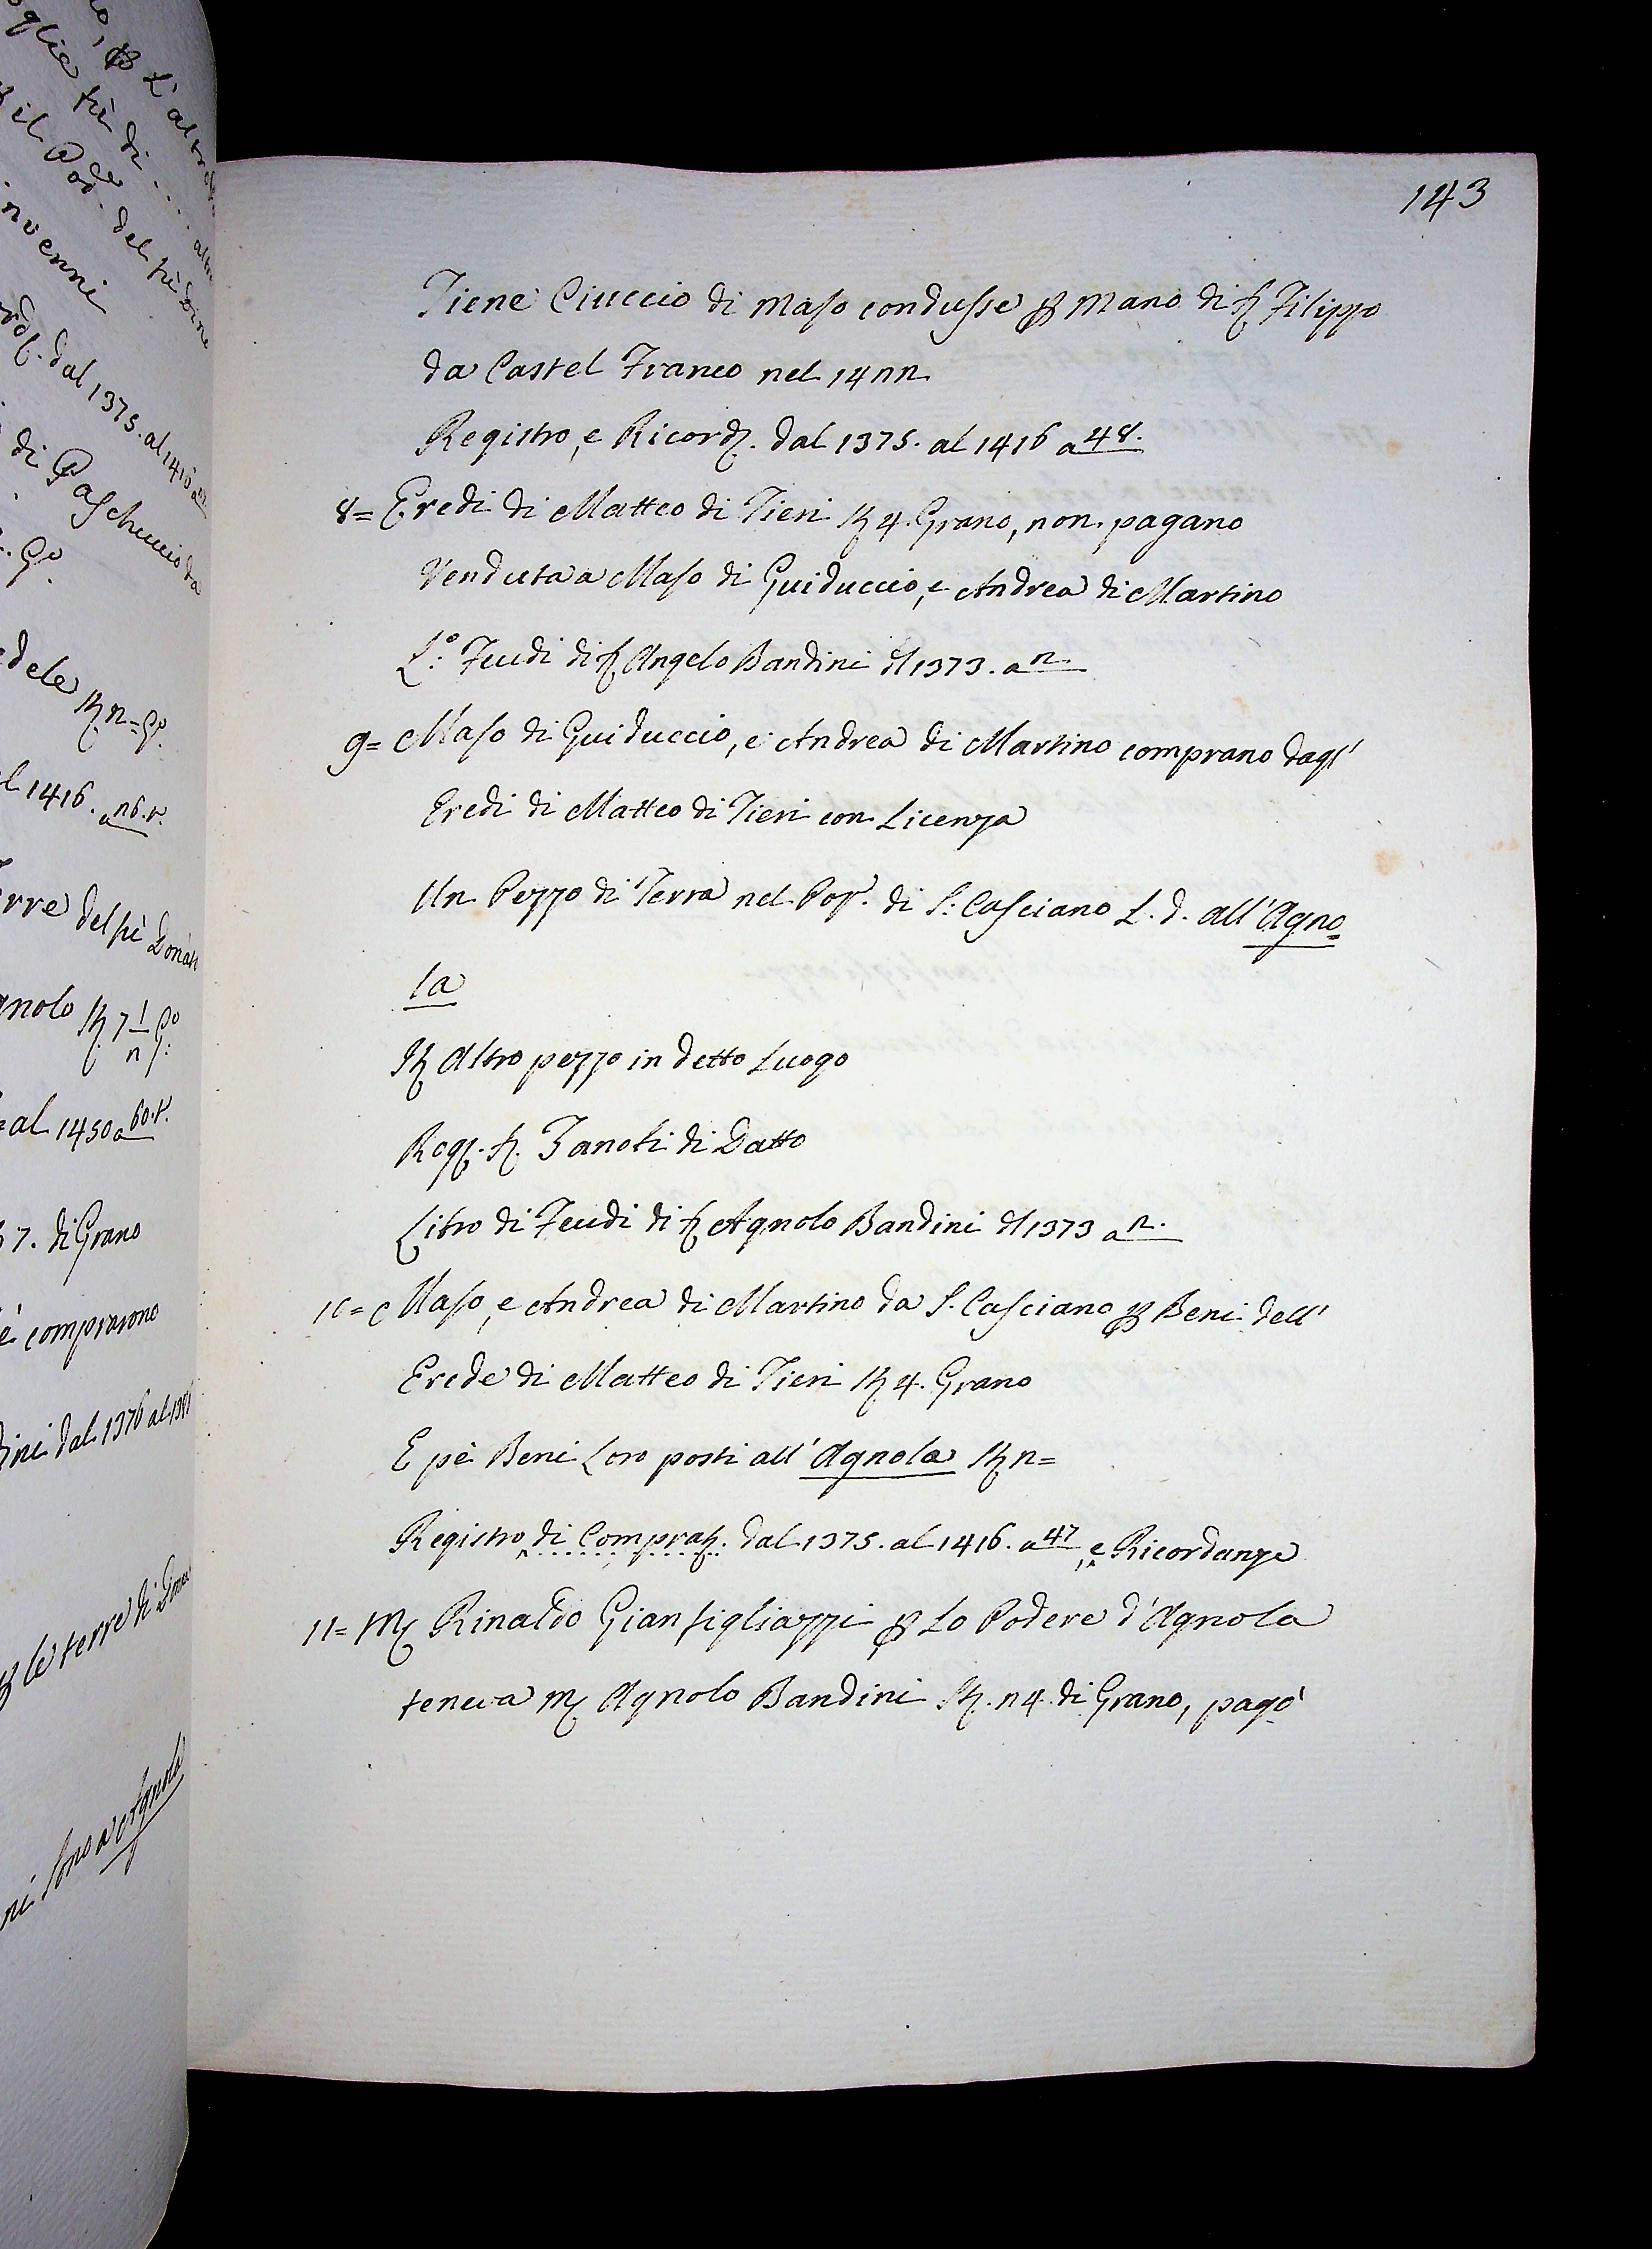 143
Tiene Ciuccio di Maso condusse p mano di s Filippo
da Castel Franco nel 14nn
Registro, e Ricordz. dal 1375. al 1416 a 48.
8= Eredi di Matteo di Tieri St 4. Grano, non pagano
Venduta a Maso di Guiduccio, e Andrea di Martino
L:º Feudi di s Angelo Bandini dl 1373. a n.
9= Maso di Guiduccio, e Andrea di Martino comprano dagl'
Eredi di Matteo di Tieri con Licenza
Un Pezzo di Terra nel Pop. di S: Casciano L. d. all'Agno=
la
It Altro pezzo in detto Luogo
Rog. s. Zanobi di Datto
Libro di Feudi di s Agnolo Bandini dl 1373 a n.
10= Maso, e Andrea di Martino da S. Casciano p Beni dell'
Erede di Matteo di Tieri St 4. Grano
E pè Beni Loro posti all'Agnola St n=
Registro di Compraz. dal 1375. al 1416. a 47 e Ricordanze
11= M Rinaldo Gianfigliazzi p Lo Podere d'Agnola
teneva M Agnolo Bandini St. n4. di Grano, pagò
di
il Pod. del
dal 1375. al 1416
di Paschuccio da
St n= Gº.
1416. a n6.t.
del
St 7 1/n Gº:
al 1450 a 60.t.
7. di Grano
comprarono
dal 1376 al
le terre di
Sono a Agnola